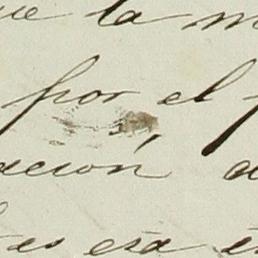 que la m
por el p
ación
es esa es